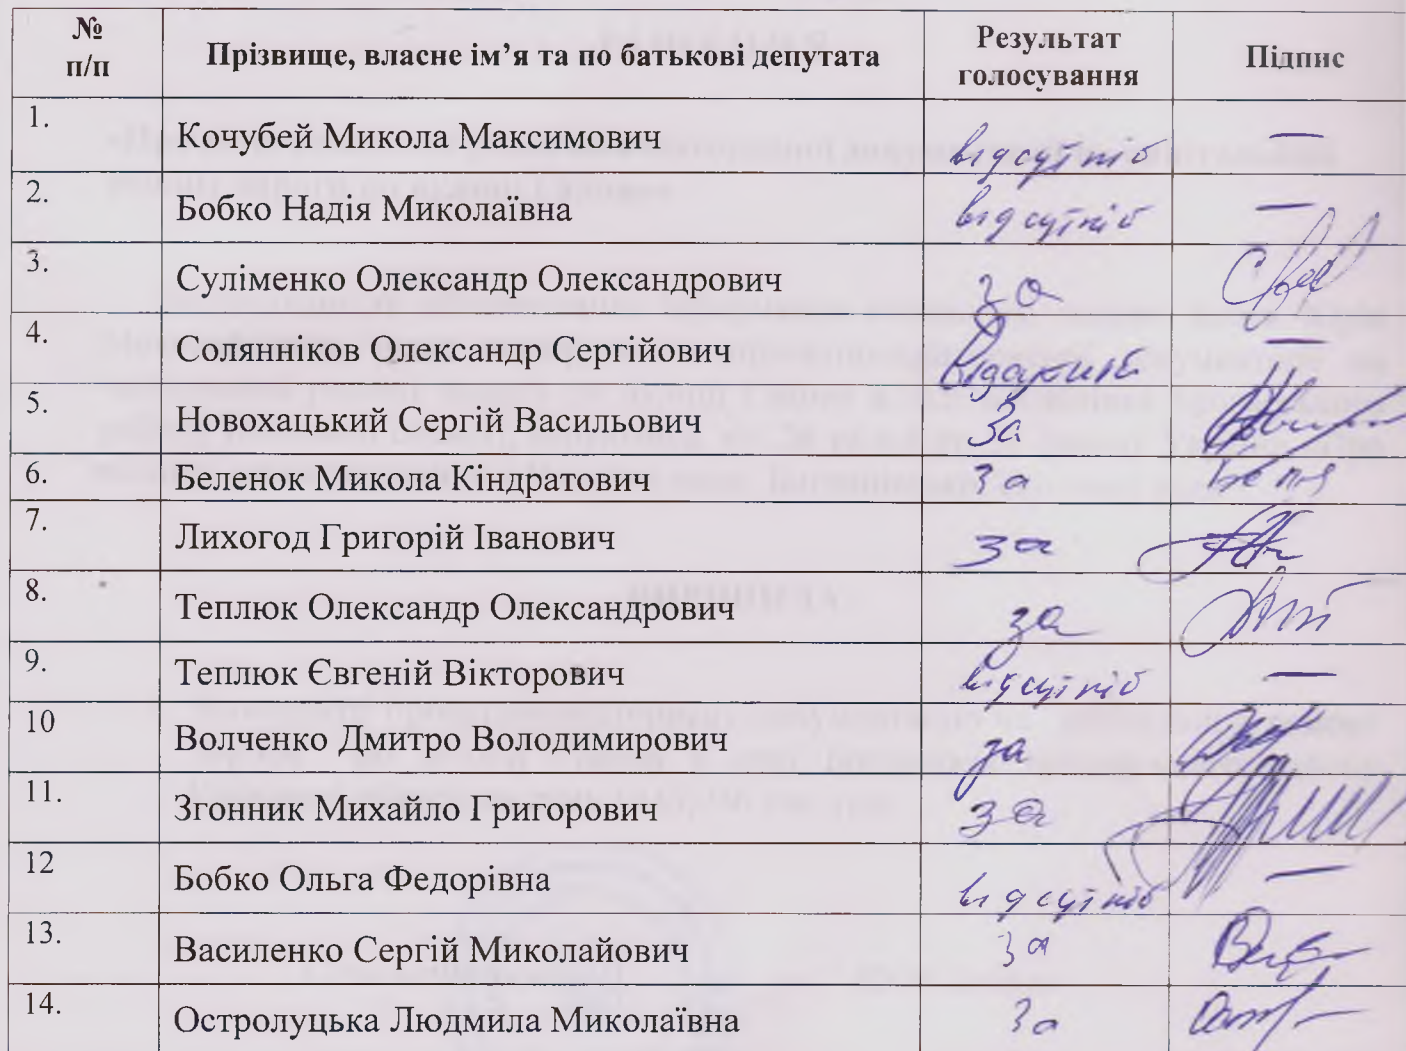 № п/п Прізвище, власне ім’я та по батькові депутата Результат голосування Підпис
1. Кочубей Микола Максимович відсутній —
2. Бобко Надія Миколаївна відсутній —
3. Суліменко Олександр Олександрович за
4. Солянніков Олександр Сергійович відсутній —
5. Новохацький Сергій Васильович За
6. Беленок Микола Кіндратович За
7. Лихогод Григорій Іванович за
8. Теплюк Олександр Олександрович за
9. Теплюк Євгеній Вікторович відсутній —
10 Волченко Дмитро Володимирович за
11. Згонник Михайло Григорович за
12 Бобко Ольга Федорівна відсутній —
13. Василенко Сергій Миколайович за
14. Остролуцька Людмила Миколаївна за